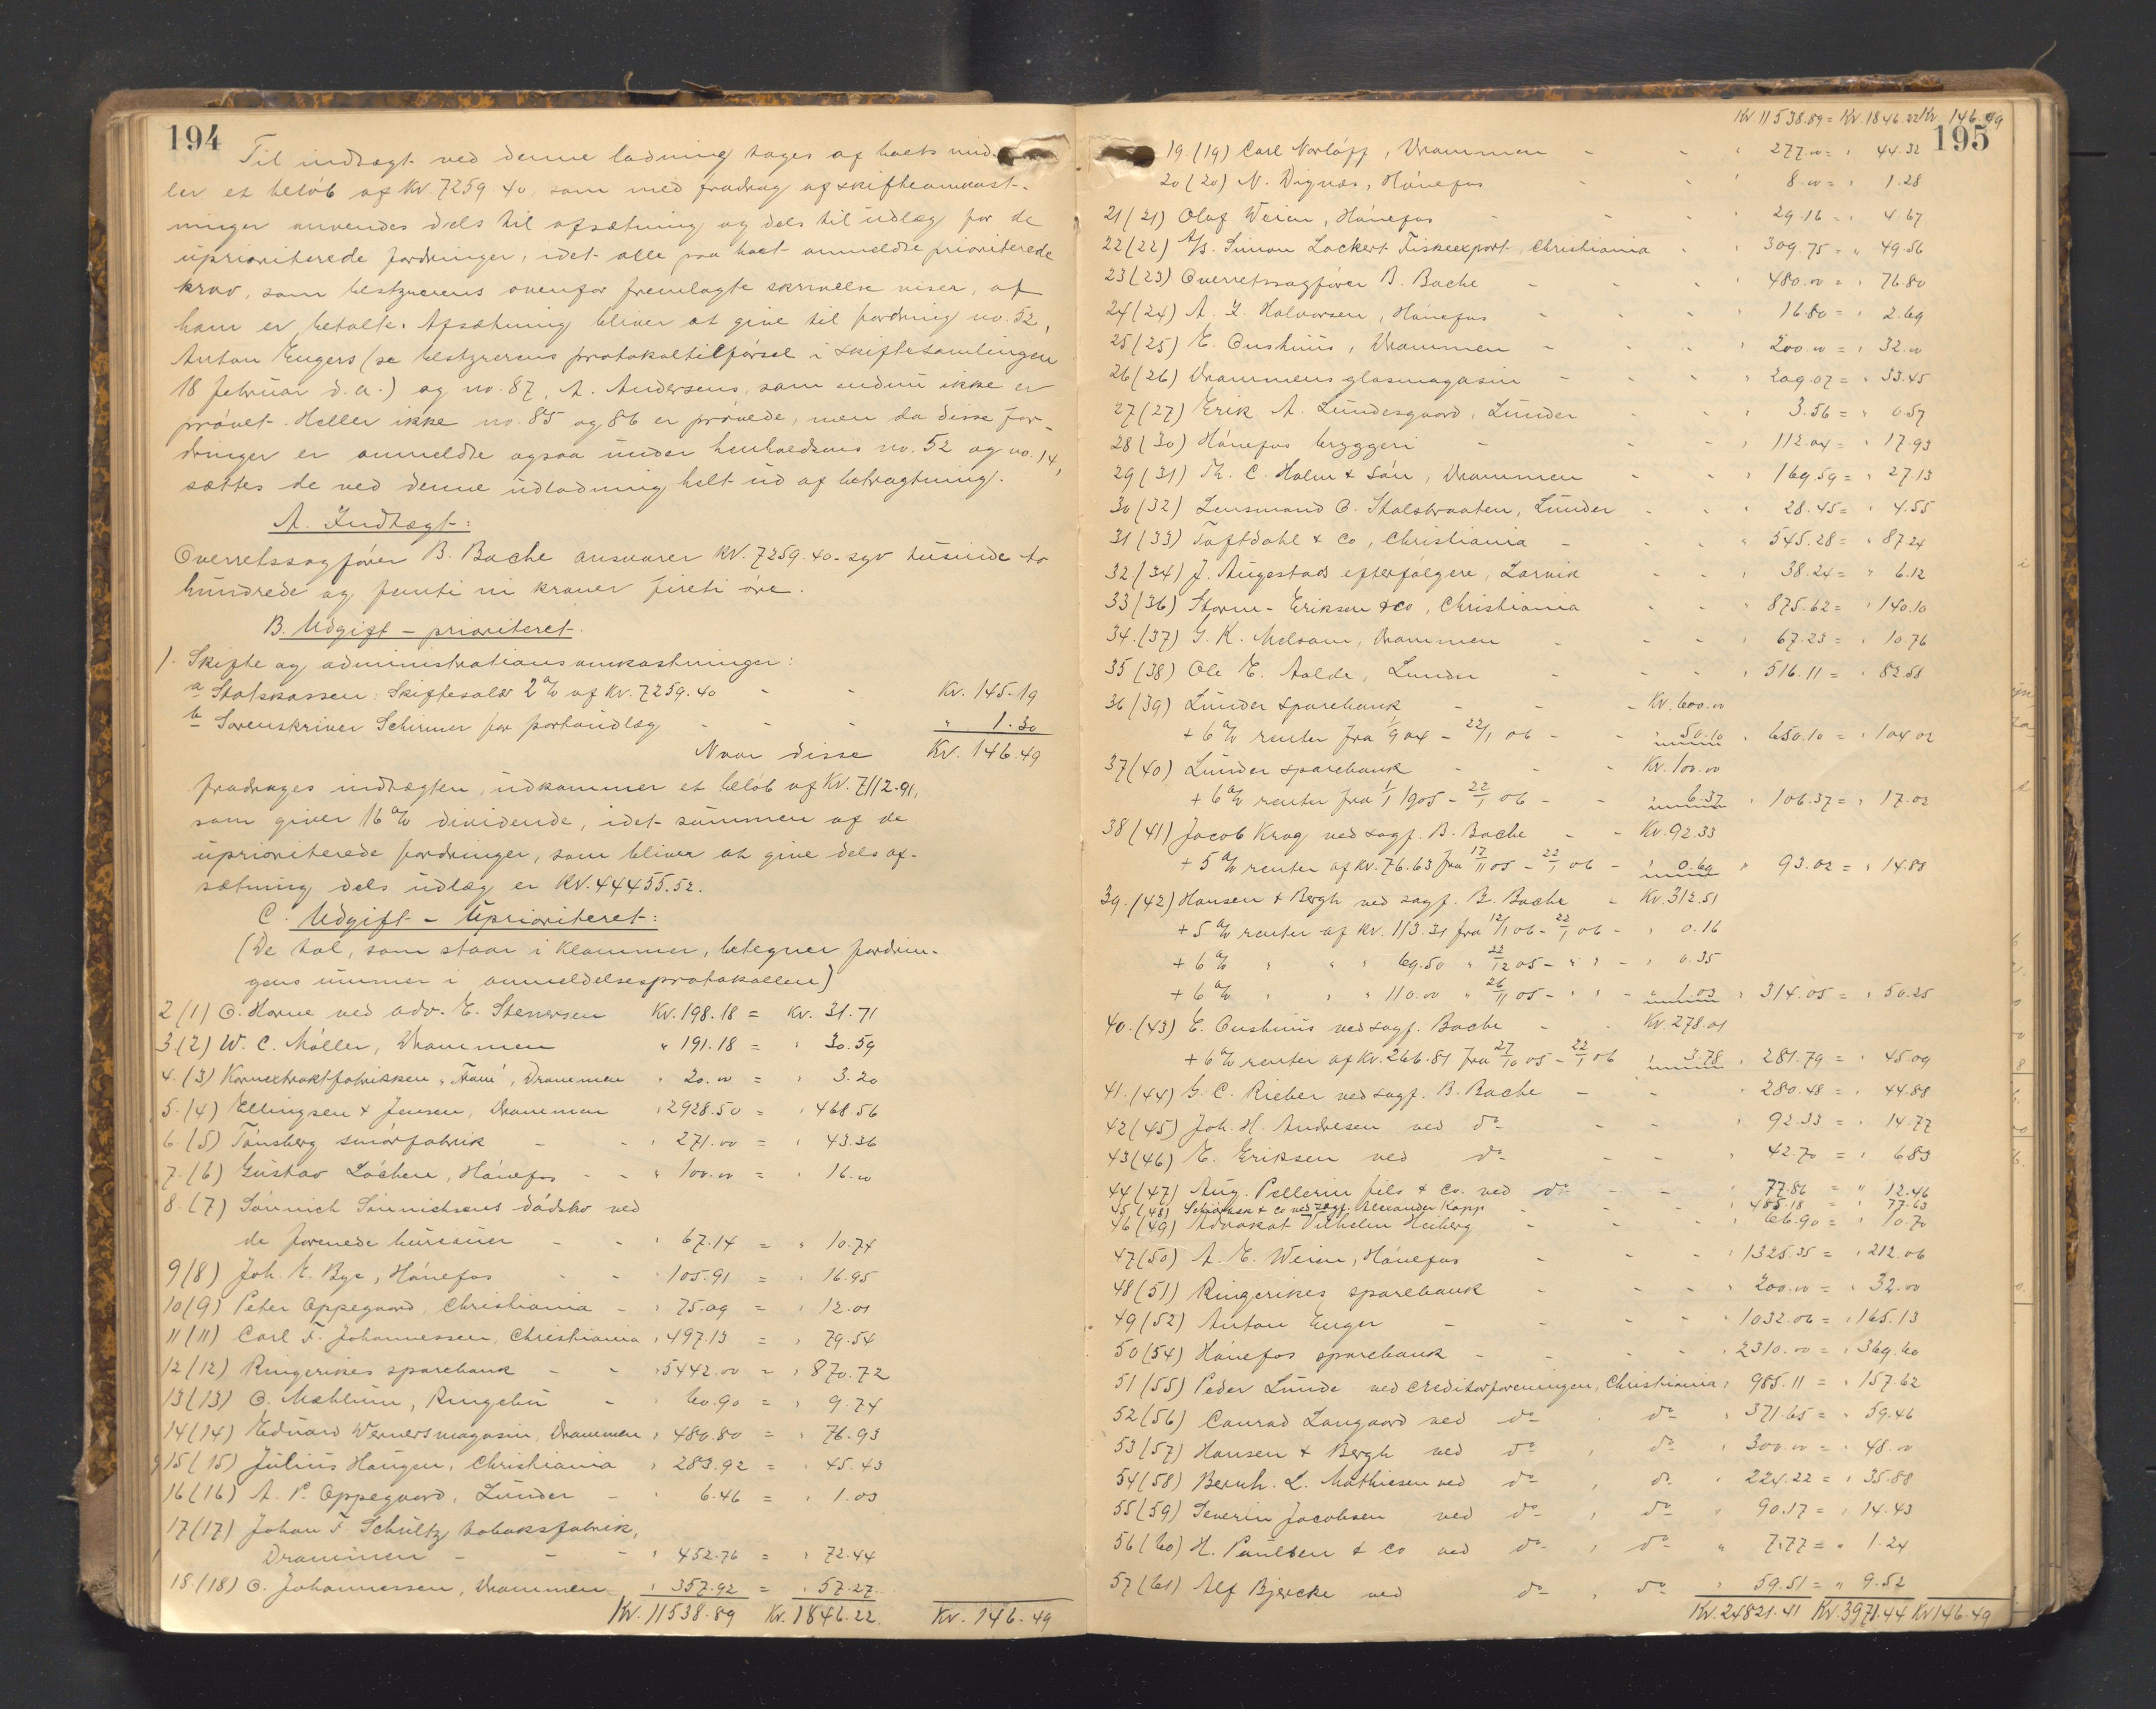 194
Til indtægt ved denne ladning tages af boets mid-
ler et beløb af Kr. 7259.40, som med fradrag af skifteomkost-
ninger anvendes dels til afsætning og dels til udlæg for de
uprioriterede fordringer, idet alle paa boet anmeldte prioriterede
krav, som bestyrerens ovenfor fremlagte skrivelse viser, af
ham er betalte. Afsætning bliver at give til fordring no. 52,
Anton Engers (se bestyrerens protokoltilførsel i skiftesamlingen
18 februar d.a.) og no. 87, A. Andersens, som endnu ikke er
prøvet. Heller ikke no. 85 og 86 er prøvede, men da disse for-
dringer er anmeldte ogsaa under henholdsvis no. 52 og no. 14,
sættes de ved denne udlodning helt ud af betragtning.
A. Indtægt:
Overretssagfører B. Bache ansvarer kr. 7259.40 - syv tusinde to
hundrede og femti ni kroner fireti øre.
B. Udgift - prioriteret.
1. Skifte og administrationsomkostninger:
a Statskassen: Skiftesalær 2 % af kr. 7259.40 - - Kr. 145.19
b Sorenskriver Schirmer for portoudlæg - - - " 1.30
Naar disse Kr. 146.49
fradrages indtægten, udkommer et beløb af Kr. 7112.91,
som giver 16 % dividende, idet summen af de
uprioriterede fordringer, som bliver at give dels af-
sætning dels udlæg er Kr. 44455.52.
C. Udgift - Uprioriteret:
(De tal, som staar i Klammer, betegner fordrin-
gens nummer i anmeldelsesprotokollen)
2 (1) O. Horne ved adv. E. Stenersen Kr. 198.18 = Kr. 31.71
3.(2) W. C. Møller, Drammen " 191.18 = " 30.59
4. (3) Kornextraktfabrikken "Fram", Drammen " 20.00 = " 3.20
5. (4) Ellingsen & Jensen, Drammen " 2928.50 = " 468.56
6 (5) Tønsberg smørfabrik - - " 271.00 = " 43.36
7. (6) Gustav Løchen, Hønefos - - " 100.00 = " 16.00
8. (7) Sønnich Sønnichsens dødsbo ved
de forenede bureauer - - " 67.14 = " 10.74
9 (8) Joh. E. Bye, Hønefos - - " 105.91 = " 16.95
10 (9) Peter Oppegaard, Christiania - " 75.09 = " 12.01
11 (11) Carl F. Johannessen, Christiania " 497.13 = " 79.54
12 (12) Ringerikes sparebank - - " 5442.00 = " 870.72
13 (13) O. Mæhlum, Ringebu - " 60.90 = " 9.74
14 (14) Eduard Werners magasin, Drammen " 480.80 = " 76.93
15 (15) Julius Haugen, Christiania " 283.92 = " 45.43
16 (16) A. P. Oppegaard, Lunder - " 6.46 = " 1.03
17 (17) Johan F. Schultz tobaksfabrik,
Drammen - - - " 452.76 = " 72.44
18. (18) O. Johannessen, Drammen " 357.92 = " 57.27
Kr. 11538.89 Kr. 1846.22. Kr. 146.49
Kr. 11538.89 = Kr. 1846.22 Kr. 146.49
195
19. (19) Carl Norløff, Drammen - - " 277.00 = " 44.32
20 (20) N. Vignæs, Hønefos - - " 8.00 = " 1.28
21 (21) Olaf Weien, Hønefos - - - " 29.16 = " 4.67
22 (22) A/S. Simon Lockert Fiskeexport, Christiania - " 309.75 = " 49.56
23 (23) Overretssagfører B. Bache - - - " 480.00 = " 76.80
24 (24) A. F. Halvorsen, Hønefos - - - " 16.80 = " 2.69
25 (25) E. Cushius, Drammen - - - " 200.00 = " 32.00
26 (26) Drammens glasmagasin - - - " 209.07 = " 33.45
27 (27) Erik A. Lundesgaard, Lunder - - " 3.56 = " 0.57
28 (30) Hønefos bryggeri - - - " 112.04 = " 17.93
29 (31) Th. C. Holm & Søn, Drammen - - " 169.59 = " 27.13
30 (32) Lensmand O. Stalsbraaten, Lunder - - " 28.45 = " 4.55
31 (33) Toftdahl & Co, Christiania - - - " 545.28 = " 87.24
32 (34) J. Augestads efterfølgere, Larvik - - " 38.24 = " 6.12
33 (36) Storm-Eriksen & Co, Christiania - - " 875.62 = " 140.10
34. (37) G. K. Melsom, Drammen - - - " 67.23 = " 10.76
35 (38) Ole E. Aalde, Lunder - - - " 516.11 = " 82.58
36 (39) Lunder sparebank - - - Kr. 600.00
+ 6 % renter fra 1/9 04 - 22/1 06 - - " 50.10 " 650.10 = " 104.02
37 (40) Lunder sparebank - - - Kr. 100.00
+ 6 % renter fra 1/1 1905 - 22/1 06 - - " 6.37 " 106.37 = " 17.02
38 (41) Jacob Krog ved sagf. B. Bache - - Kr. 92.33
+ 5 % renter af Kr. 76.63 fra 17/11 05 - 22/1 06 - " 0.69 " 93.02 = " 14.88
39. (42) Hansen & Bergh ved sagf. B. Bache - Kr. 312.51
+ 5 % renter af kr. 113.31 fra 12/1 06 - 22/1 06 - " 0.16
+ 6 % " " " 69.50 " 22/12 05 - " " - " 0.35
+ 6 % " " " 110.00 " 26/11 05 - " " - " 1.03 " 314.05 = " 50.25
40. (43) E. Cushius ved sagf. Bache - - Kr. 278.01
+ 6 % renter af Kr. 266.81 fra 27/10 05 - 22/1 06 " 3.78 " 281.79 = " 45.09
41. (44) G. C. Rieber ved sagf. B. Bache - - " 280.48 = " 44.88
42 (45) Joh. H. Andresen ved do - - " 92.33 = " 14.77
43 (46) E. Eriksen ved do - - - " 42.70 = " 6.83
44 (47) Aug. Pellerin fils & Co. ved do - - " 77.86 = " 12.46
45 (48) & Co ved sagf. Alexander Kopp - - " 485.18 " 77.63
46 (49) Advokat Vilhelm Heiberg - - " 66.90 = " 10.70
47 (50) A. E. Weien, Hønefos - - - " 1325.35 = " 212.06
48 (51) Ringerikes sparebank - - - " 200.00 = " 32.00
49 (52) Anton Enger - - - - " 1032.06 = " 165.13
50 (54) Hønefos sparebank - - - - " 2310.00 = " 369.60
51 (55) Peder Lunde ved Creditorforeningen, Christiania " 985.11 = " 157.62
52 (56) Conrad Langaard ved do " do " 371.65 = " 59.46
53 (57) Hansen & Bergh ved do " do " 300.00 = " 48.00
54 (58) Bernh. L. Mathiesen ved do " do " 224.22 = " 35.88
55 (59) Severin Jacobsen ved do " do " 90.17 = " 14.43
56 (60) H. Poulsen & Co ved do " do " 7.77 = " 1.24
57 (61) Alf Bjercke ved do " do " 59.51 = " 9.52
Kr. 24821.41 Kr. 3971.44 Kr 146.49